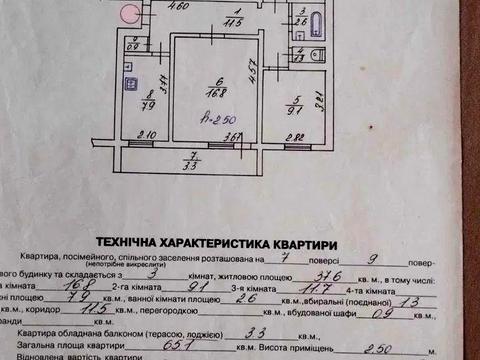 4.60
1
11.5
3
2.6
0
0.9
4
1.3
6
16.8
4.57
3.77
8
7.9
5
9.1
3.21
h=2.50
2.10
3.61
2.82
7
3.3
ТЕХНІЧНА ХАРАКТЕРИСТИКА КВАРТИРИ
Квартира, посімейного, спільного заселення розташована на 7 поверсі 9 повер-
(непотрібне викреслити)
вого будинку та складається з 3 кімнат, житловою площею 37.6 кв. м., в тому числі:
кімната 16.8 2-га кімната 9.1 3-я кімната 11.7 4-та кімната
7.9 кв. м., ванної кімнати 2.6 кв.м., вбиральні (поєднаної) 1.3
кв. м., коридор 11.5 кв.м., перегородкою кв. м., вбудованої шафи 0.9 кв.м.,
кв.м.
Квартира обладнана балконом (терасою, лоджією) 3.3 кв.м.,
Загальна площа квартири 65.1 кв. м. Висота приміщень 2.50 м.
Відновлена вартість квартири